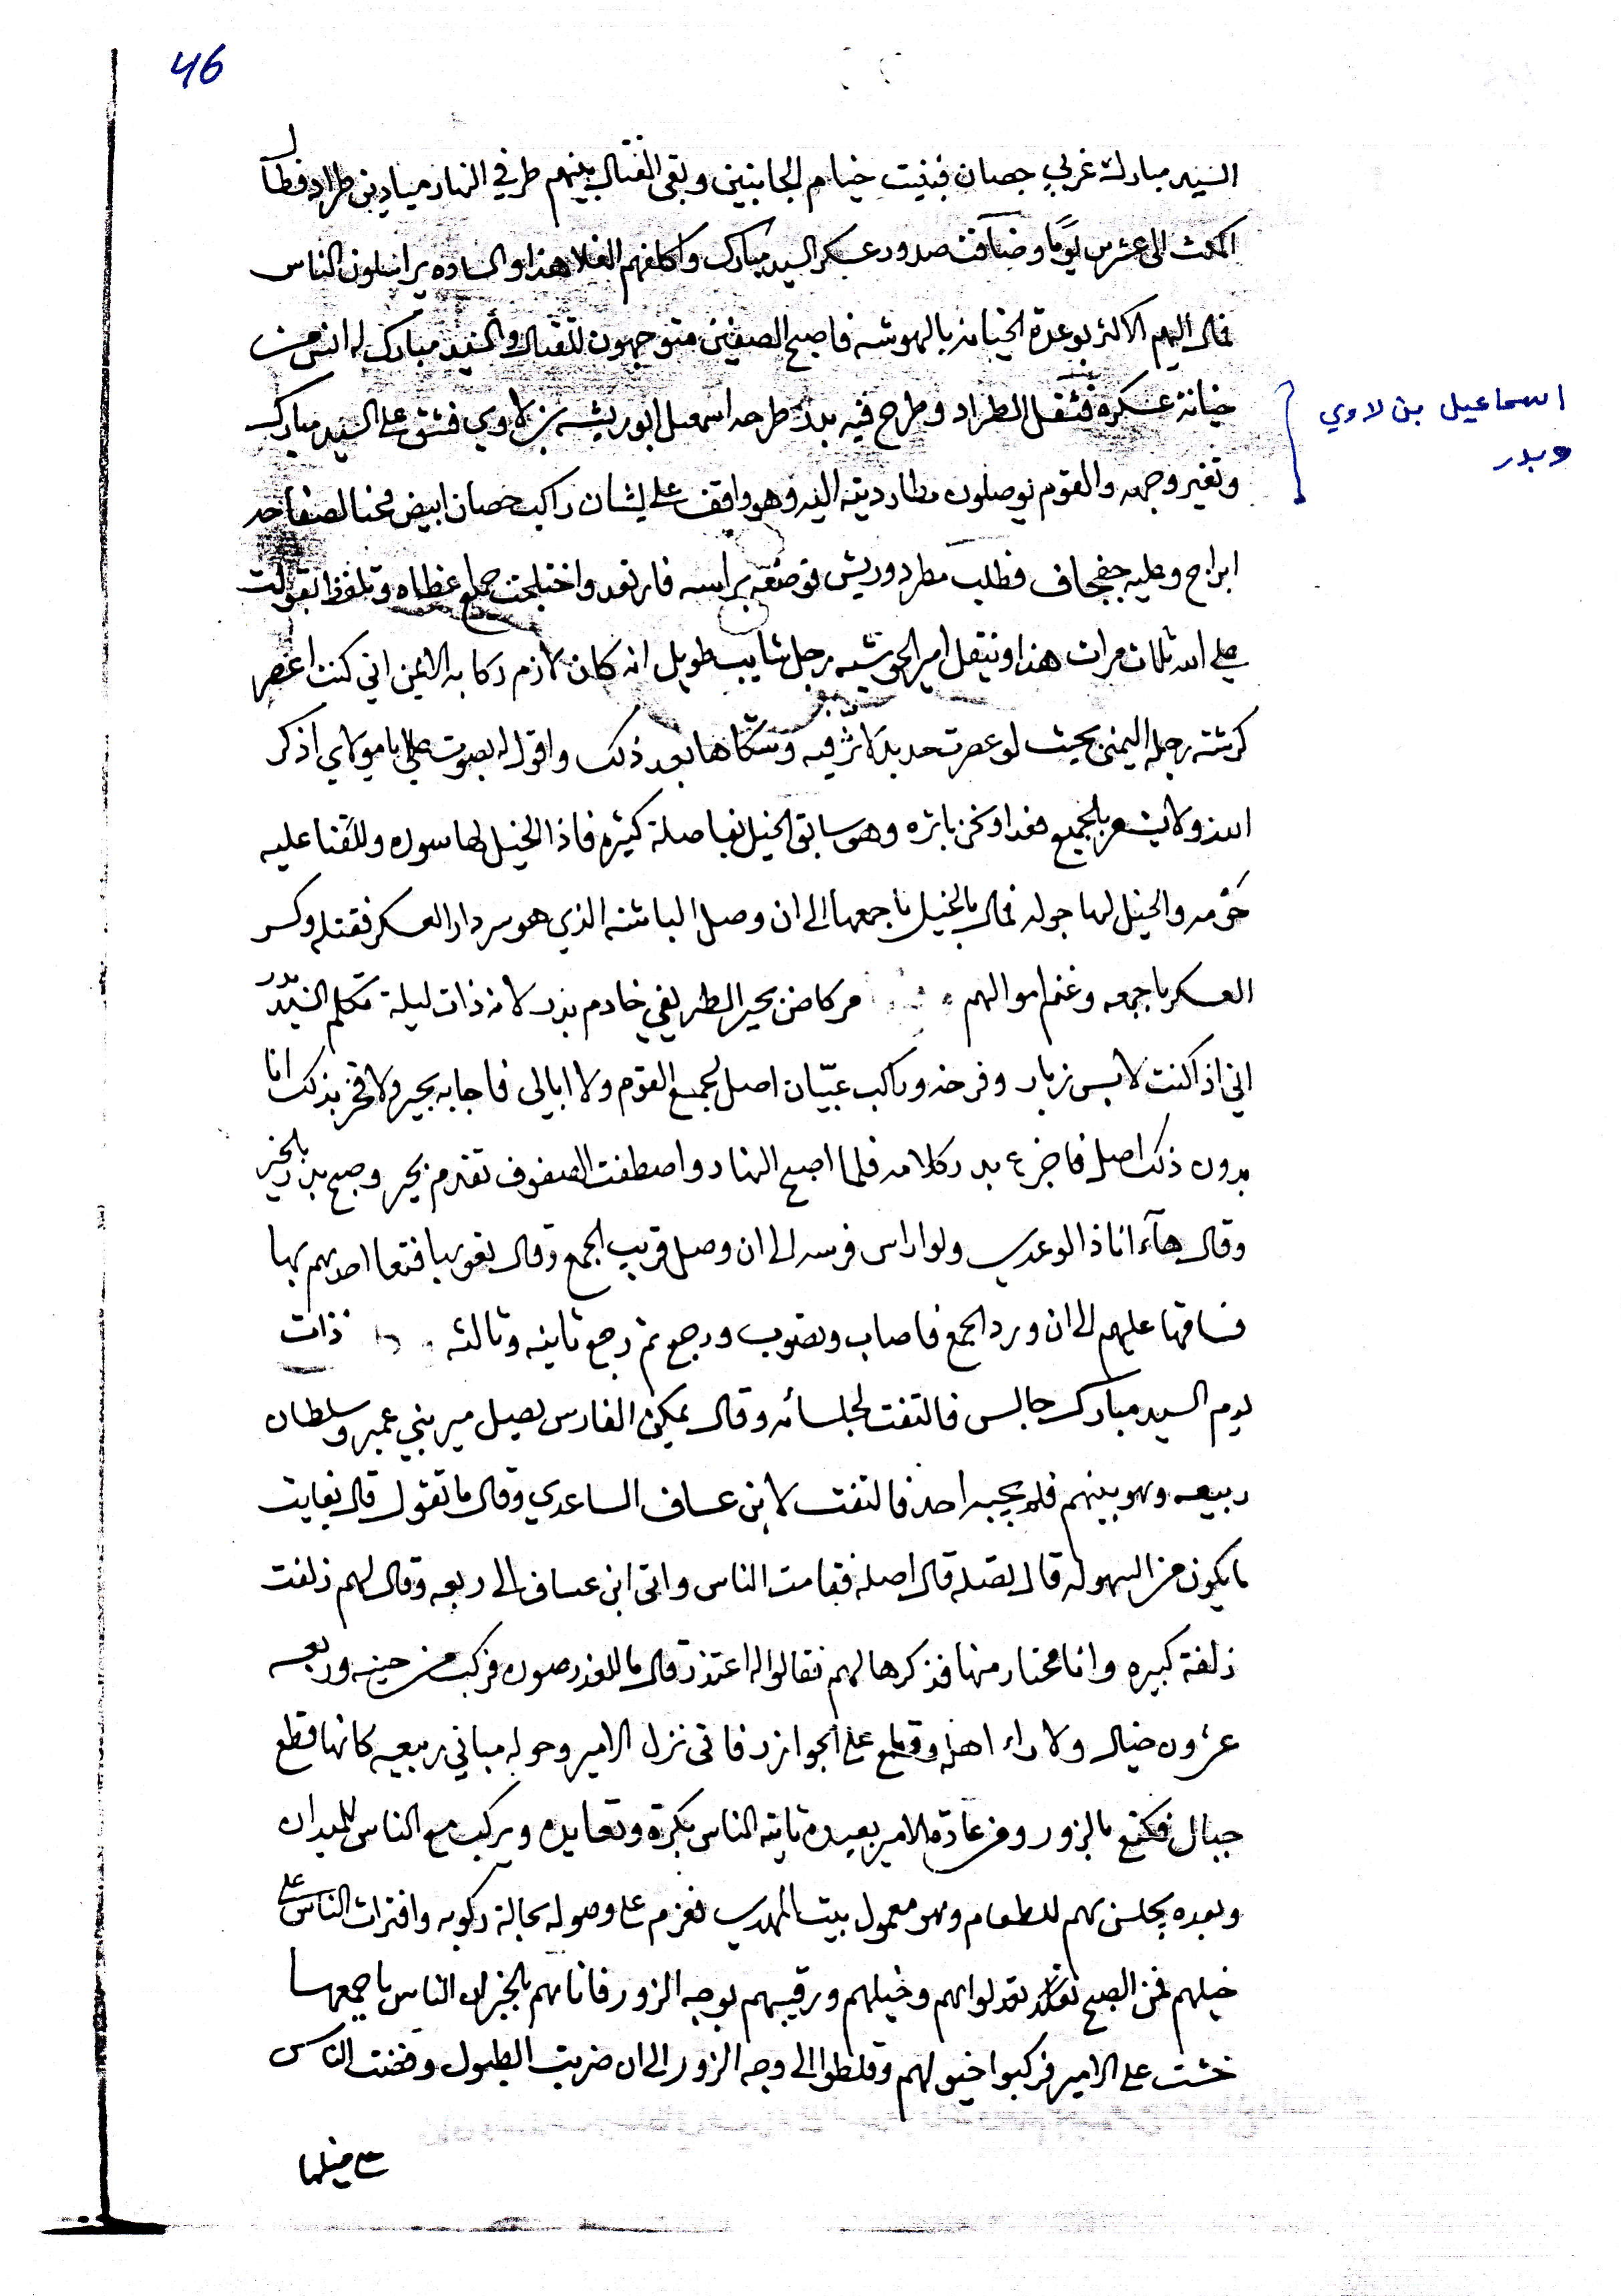 46
السيد مبارك غربي جصان فبنيت خيام الجانبين وبقى القتال بينهم طرفي النهار ميادين طراد فطال
المكث الى عشرين يوما وضاقت صدور عسكر السيد مبارك واكلفهم الغلا هذا والساده يراسلون الناس
فمال اليهم الاكثر بوعدة الخيانه بالهوشه فاصبح الصفين متوجهون للقتال والسيد مبارك له انس من
خيانة عسكره فثقل الطراد وطرح فيه بدر طرحه اسمعيل ابو ريشه بن لاوي فشق على السيد مبارك
اسماعيل بن لاوي
وبدر
وتغير وجهه والقوم يوصلون مطارديته اليه وهو واقف على نشان راكب حصان ابيض
ابراح وعليه جفجاف فطلب مطرد وريش فوضعه براسه فارتعد واختلجت جملع عظاه وتلفظ بقولت
علي الله ثلاث مرات هذا وينقل امير الحويشه رجل شايب طويل انه كان لازم ركابه الايمن اني كنت اعصر
كرشة رجله اليمنى بحيث لو عصرت حديد لاثر فيه وشكاها بعد ذلك واقول له بصوت علي يا مولاي اذكر
الله ولا يشعر بالجميع فغدا ونحن باثره وهو سابق الخيل بفاصلة كثيره فاذا الخيل لها سوره وللقنا عليه
حومه والخيل لها جوله فمال بالخيل باجمعها الى ان وصل الباشه الذي هو سردار العسكر فقتله وكسر
العسكر باجمعه وغنم اموالهم مركاض بحير الطريفي خادم بدر لانه ذات ليلة تكلم السيد بدر
اني اذا كنت لابس زبار وفرخه وراكب عبيان اصل لجمع القوم ولا ابالي فاجابه بحير ولا فخر بذلك انا
بدون ذلك اصل فاخرع بدر كلامه فلما اصبح النهار واصطفت الصفوف تقدم بحير وصبح بدر بالخير
وقال هآء انا ذا لوعدي ولوا راس فرسه الى ان وصل قريب الجمع وقال
فساقها عليهم الى ان ورد الجمع فاصاب وتصوب ورجع ثم رجع ثانيه وثالثه ذات
يوم السيد مبارك جالس فالتفت لجلسائه وقال يمكن الفارس يصيل مير بني عمير وسلطان
ربيعه وهو بينهم فلم يجيبه احد فالتفت لابن عساف الساعدي وقال ما تقول قال بغايت
ما يكون من السهوله قال تصله قال اصله فقامت الناس واتى ابن عساف الى ربعه وقال لهم زلفت
زلفة كبيره وانا محتار منها فذكرها لهم فقالوا له اعتذر قال ما للعذر صوره فركب من حينه وربعه
عشرون خيال ولا راء اهله وقطع على الجوازر فاتى نزل الامير وحوله مباني ربيعه كانها قطع
جبال فكتع بالزور ومن عادة الامير بعيده تاتيه الناس بكرة وتعايده ويركب مع الناس للميدان
وبعده يجلس بهم للطعام وهو معمول بيت المهدي فعزم على وصوله بحالة ركوبه وافترات الناس على
خيلهم فمن الصبح وخيلهم ورقيبهم بوجه الزور فاتاهم بالخبر ان الناس باجمعها
خشت على الامير فركبوا خيولهم وقلطوا الى وجه الزور الى ان ضربت الطبول وفخت الناس
على خيلها